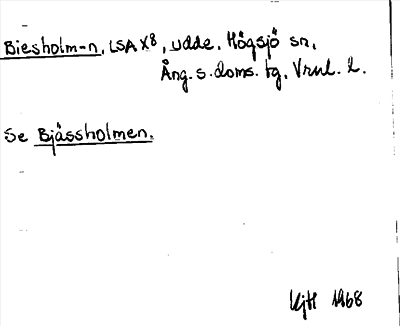 Biesholm-n, LSA X8, udde, Högsjö sn,
Ång. s. doms. tg, Vrnl. L.
Se Bjässholmen.
KjH 1968